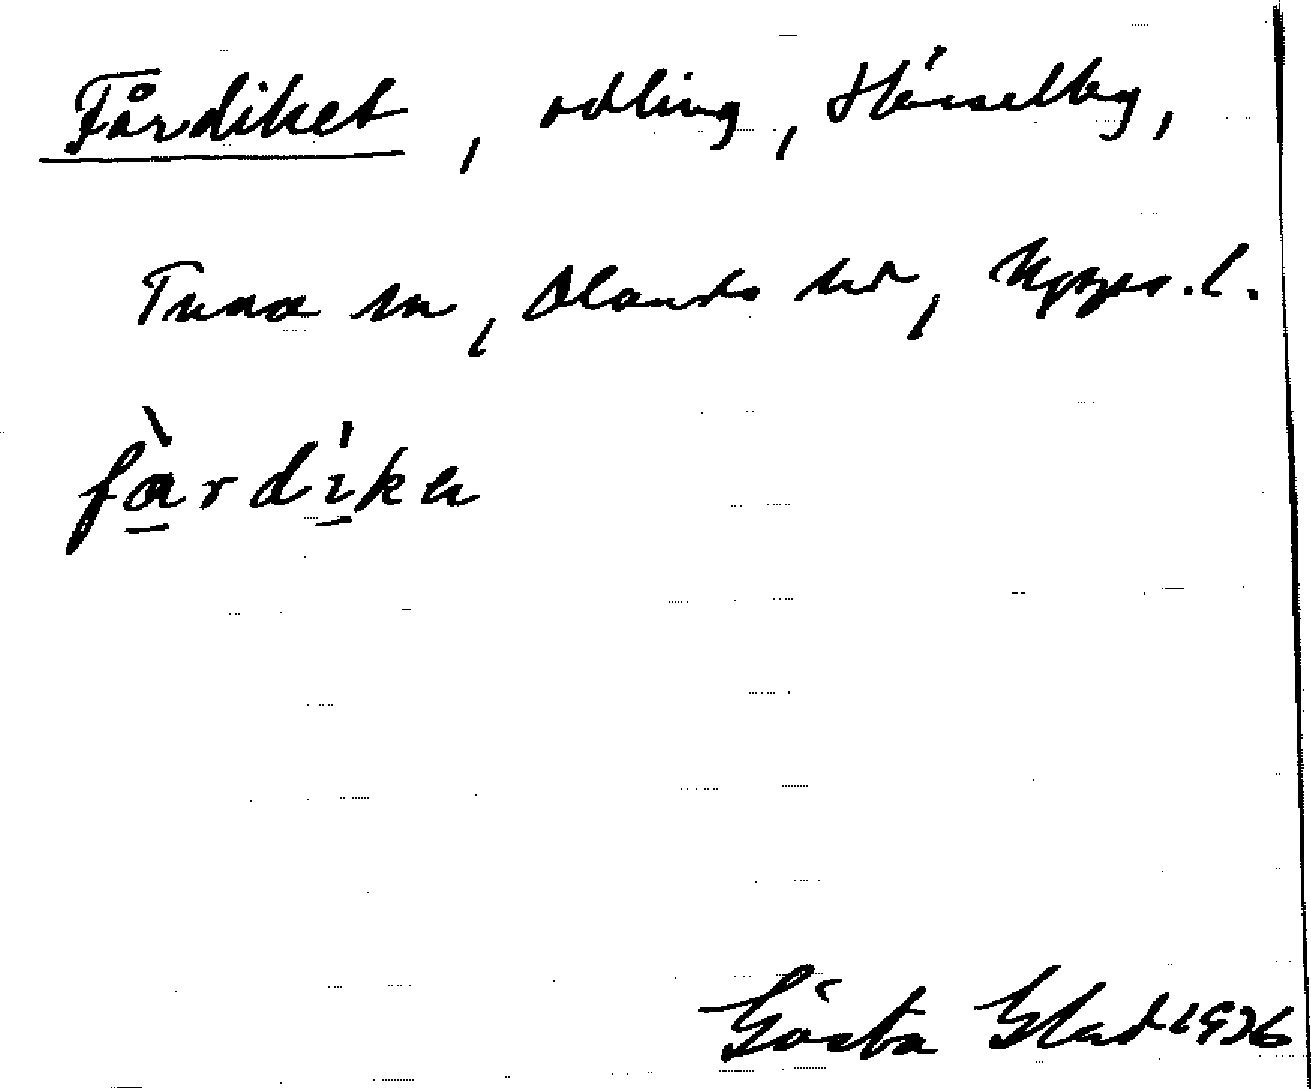 Fårdiket, odling, Hässelby,
Tuna sn, Olands hd, Upps. l.
fàrdíka
Gösta Glad 1936